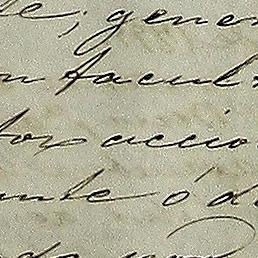 te; gener
n facult
tor accio
ante ó d